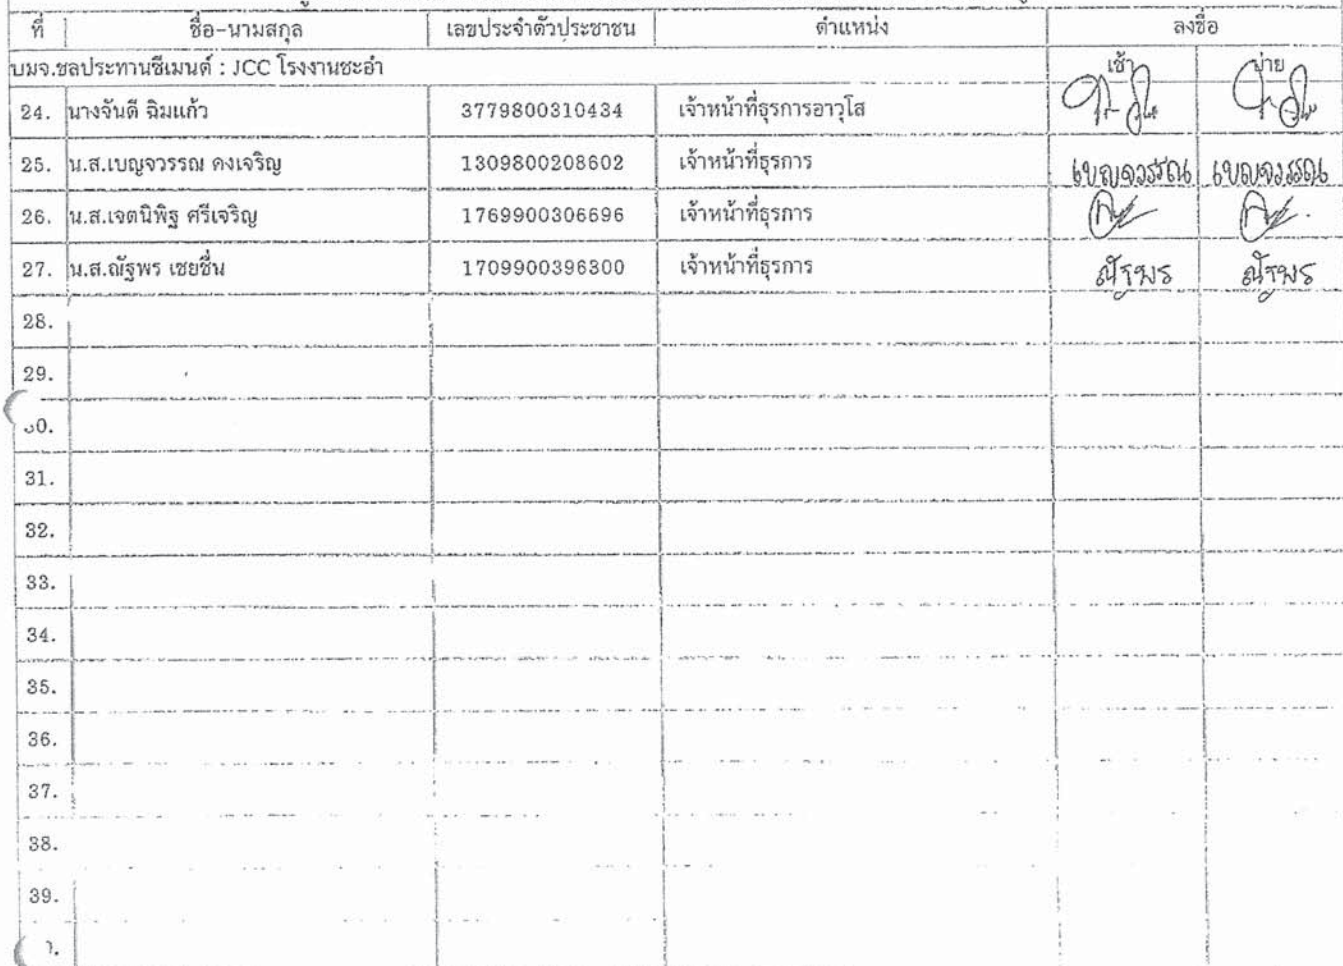 ที่ ชื่อ-นามสกุล เลขประจำตัวประชาชน ตำแหน่ง ลงชื่อ
บมจ.ชลประทานซีเมนต์ : JCC โรงงานชะอำ เช้า บ่าย
24. นางจันดี ฉิมแก้ว 3779800310434 เจ้าหน้าที่ธุรการอาวุโส
25. น.ส.เบญจวรรณ คงเจริญ 1309800208602 เจ้าหน้าที่ธุรการ เบญจวรรณ เบญจวรรณ
26. น.ส.เจตนิพิฐ ศรีเจริญ 1769900306696 เจ้าหน้าที่ธุรการ
27. น.ส.ณัฐพร เชยชื่น 1709900396300 เจ้าหน้าที่ธุรการ ณัฐพร ณัฐพร
28.
29.
31.
32.
33.
34.
35.
36.
37.
38.
39.